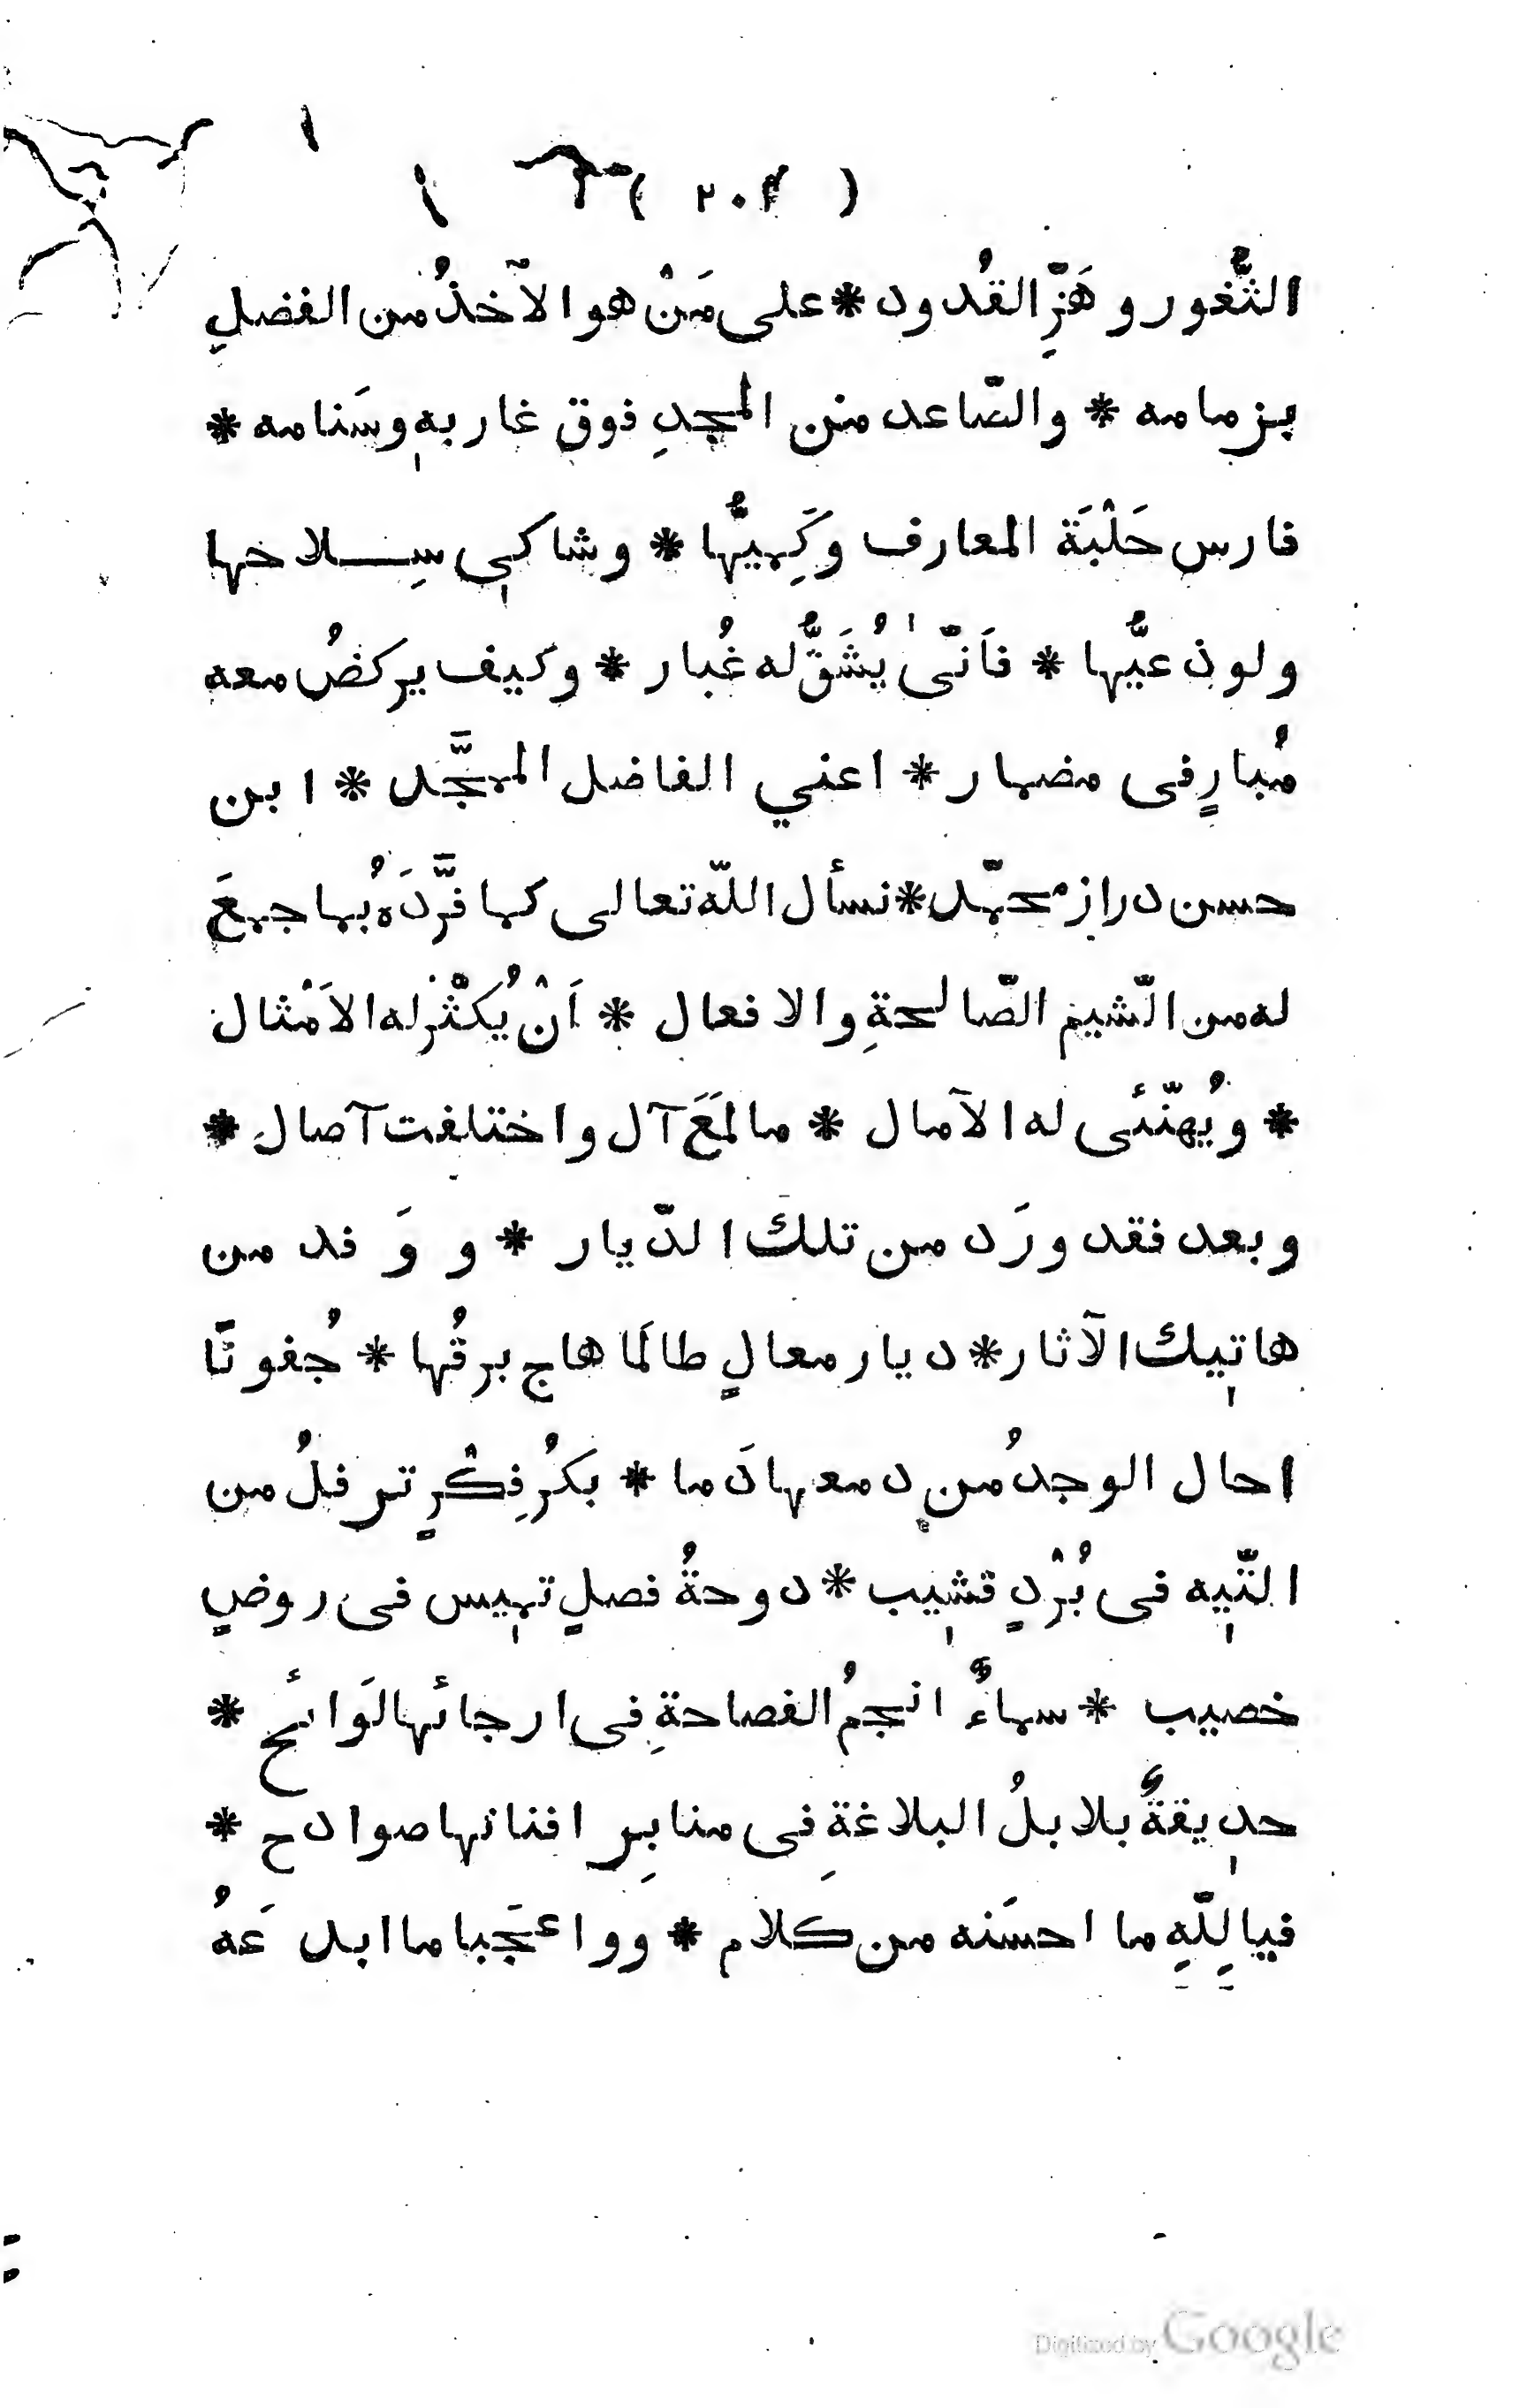 ( ٢٠٤ )
الثُّغور وهَزِّ القُدود * على مَنْ هو الآخذُ من الفضلِ
بزمامه * والصّاعد من المجدِ فوق غاربهٖ وسَنامه *
فارس حَلْبَة المعارف وكَمِيُّها * وشاكي سِلاحها
ولوذعيُّها * فاَنّىٰ يُشَقُّ له غُبار * وكيف يركضُ معه
مُبارٍ فى مضمار * اعني الفاضل الممجَّد * ابن
حسن دراز محمّد * نسأل اللّه تعالى كما فرَّدَهُ بما جمعَ
له من الشّيم الصّالحةِ والافعال * اَنْ يُكْثرله الاَمْثال
* ويُهنّئى له الآمال * ما لَمَعَ آل واختلفت آصال *
وبعد فقد ورَد من تلك الدّيار * و وَفد من
هاتيك الآثار * ديار معالٍ طالمَا هاج برقُها * جُفونًا
احال الوجدُ من دمعها دَما * بكرُ فِكْرٍ ترفلُ من
التّيه فى بُرْدٍ قشيب * دوحةُ فصلٍ تميس فى روضٍ
خصيب * سماءٌ انجمُ الفصاحةِ فى ارجائها لَوائح *
حديقةٌ بلابلُ البلاغةِ فى منابِر افنانها صوادح *
فيا لِلّهِ ما احسَنه من كلام * ووا عجَبا ما ابدعَهُ
Digitized by Google